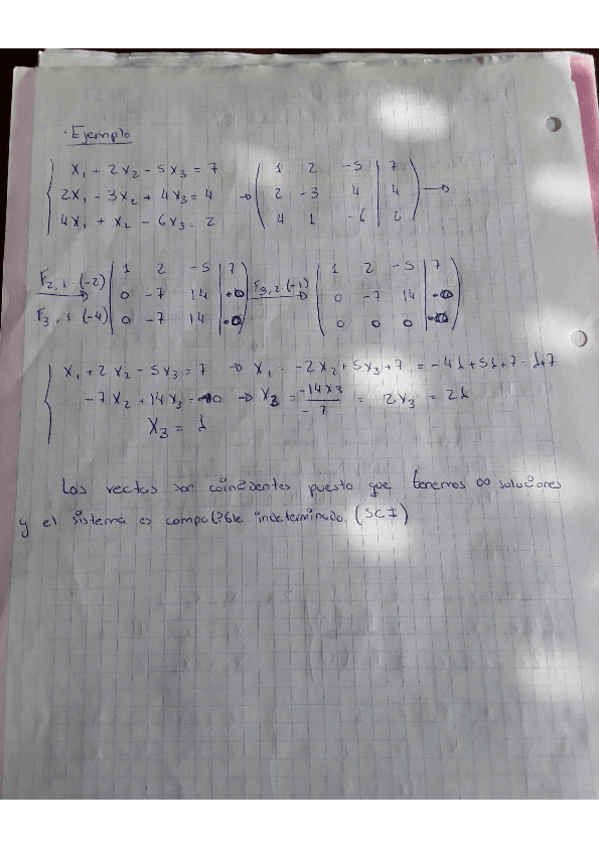 · Ejemplo
x₁ + 2x₂ - 5x₃ = 7
2x₁ - 3x₂ + 4x₃ = 4
4x₁ + x₂ - 6x₃ = 2
→
1 2 -5 | 7
2 -3 4 | 4
4 1 -6 | 2
→
F2,1·(-2)
F3,1(-4)
1 2 -5 | 7
0 -7 14
0 -7 14
F3,2·(-1)
1 2 -5 | 7
0 -7 14
0 0 0
x₁ + 2x₂ - 5x₃ = 7 → x₁ = -2x₂ + 5x₃ + 7 = -4λ + 5λ + 7 = λ + 7
-7x₂ + 14x₃ = 0 → x₂ = -14x₃ / -7 = 2x₃ = 2λ
x₃ = λ
Las rectas son coincidentes puesto que tenemos ∞ soluciones
y el sistema es compatible indeterminado. (SCI)